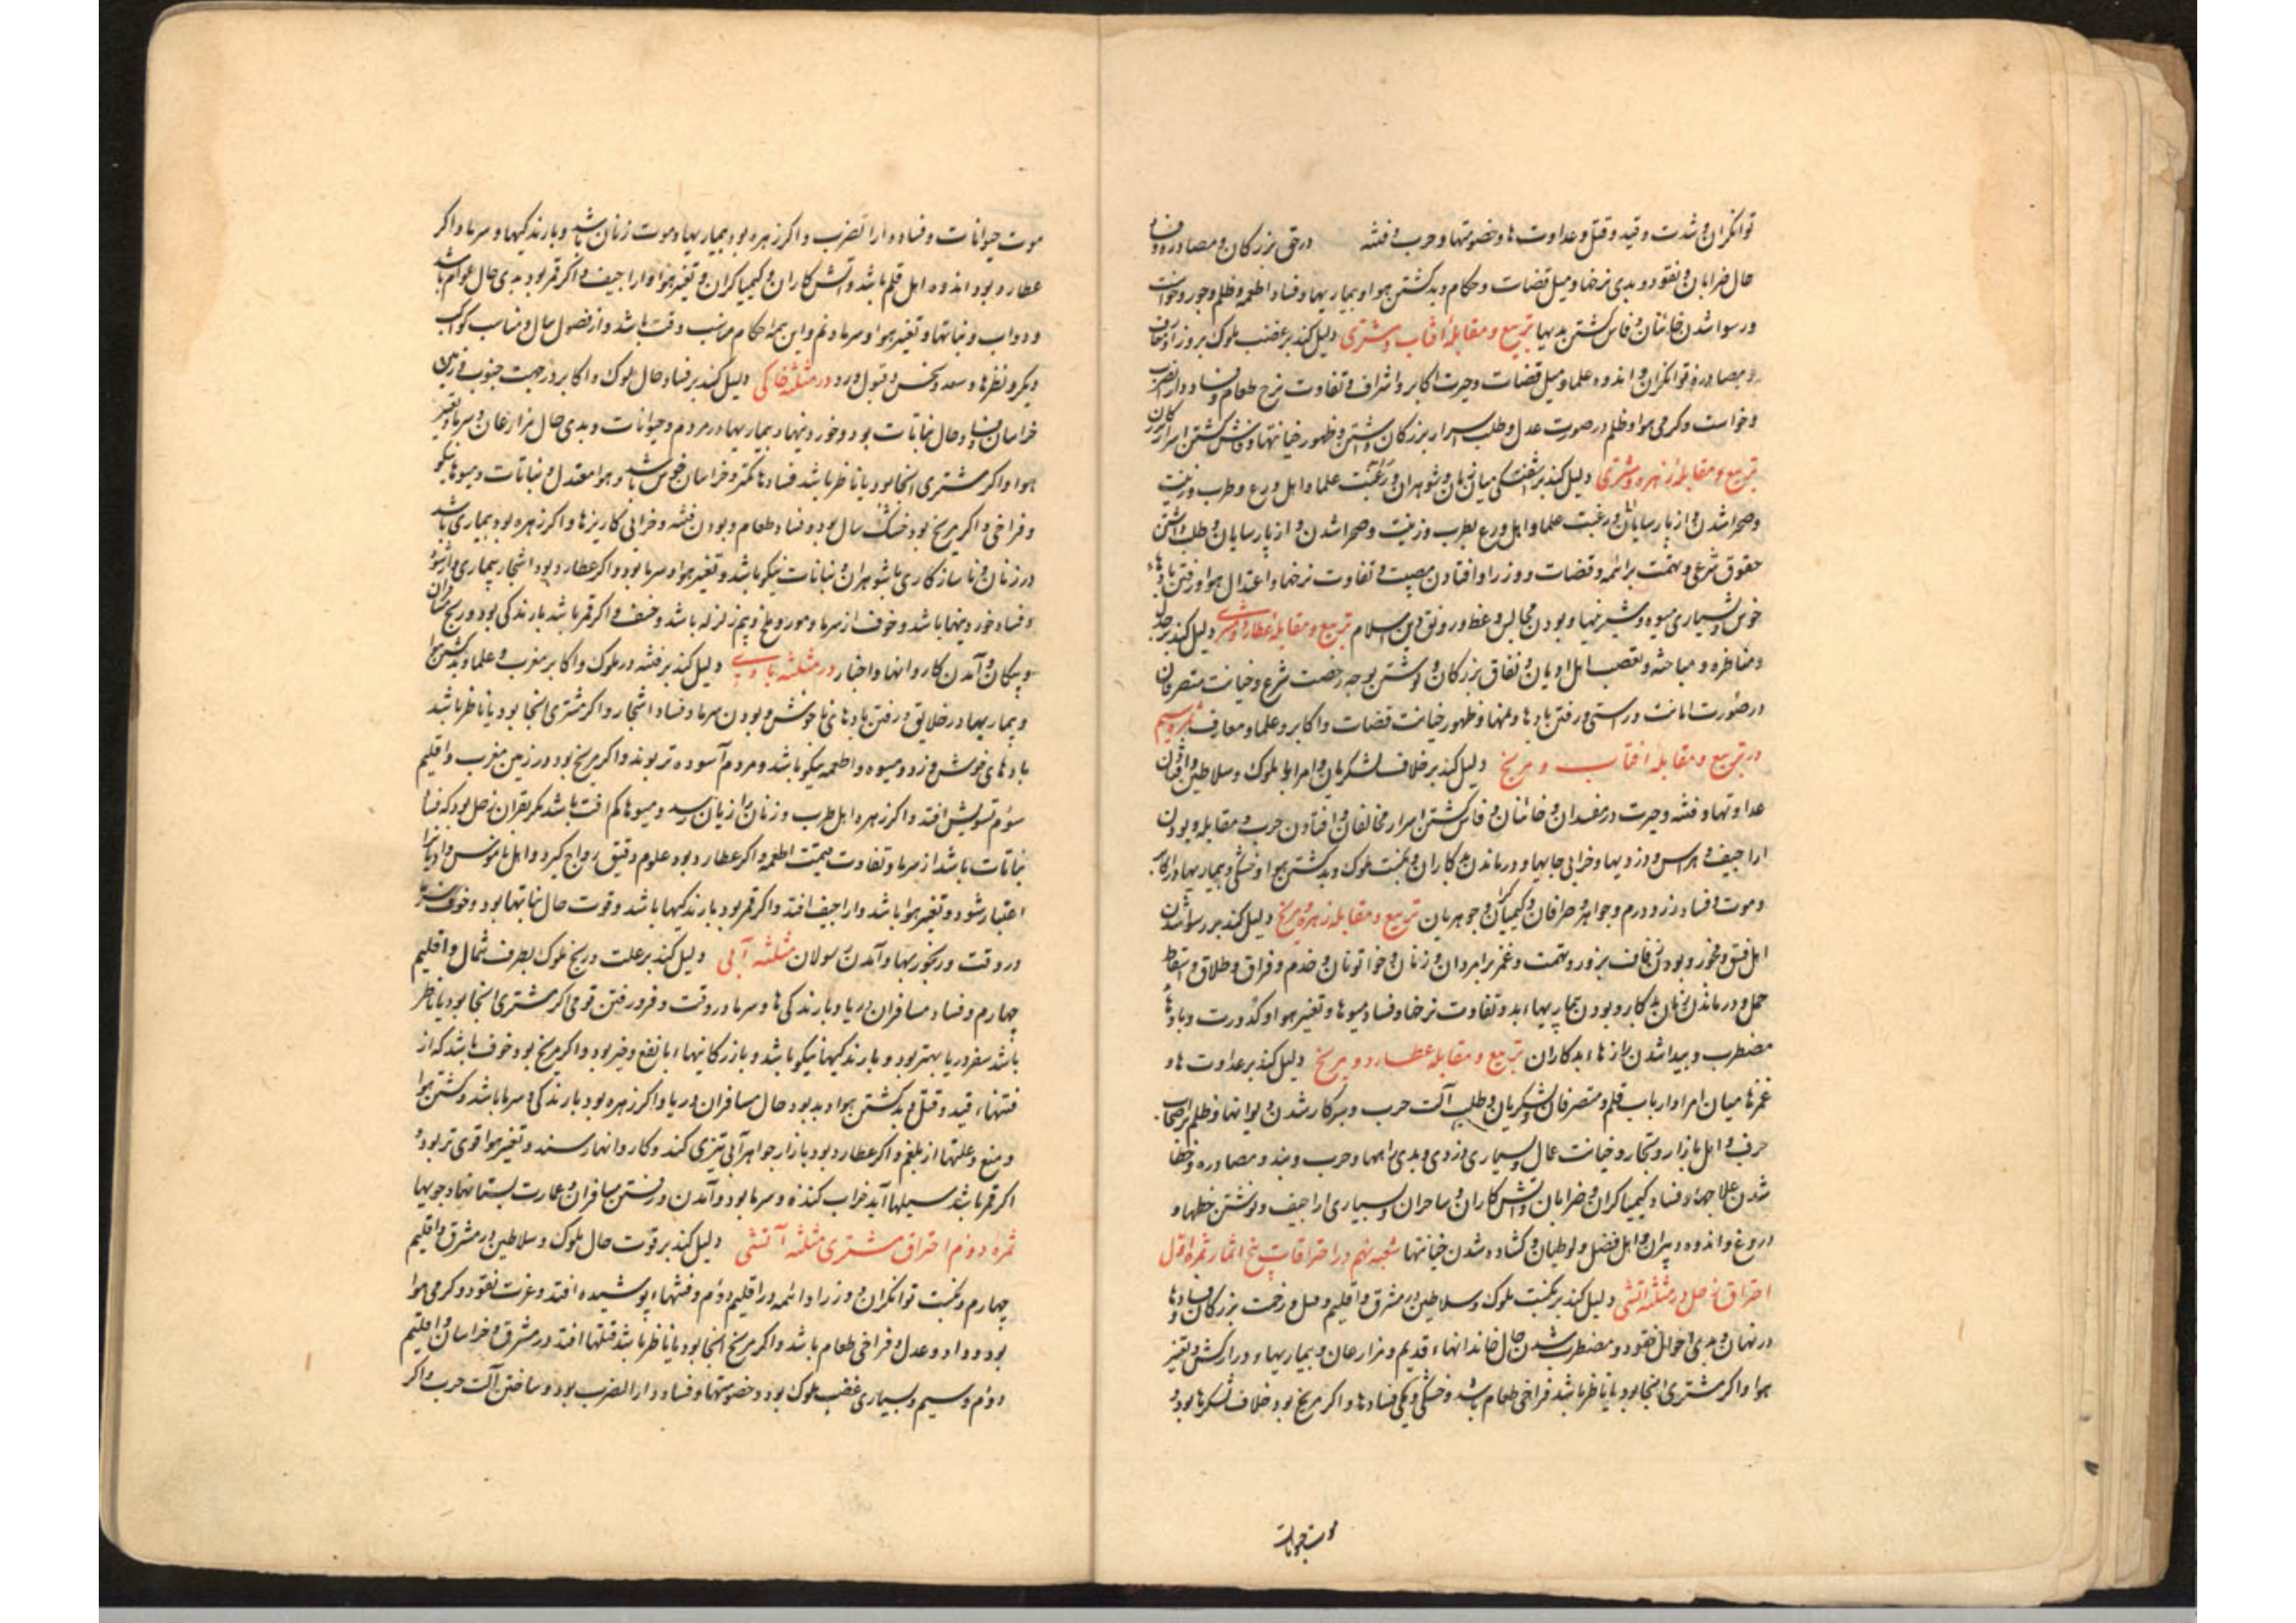 توانگران و شدت و قید و قتل و عداوت ها و خصومتها و حرب و فتنه در حق بزرگان و مصادره و
حال ضرابان و نقود و بدی نرخها و میل قضات و حکام و بد گشتن هوا و بیماریها و فساد اطعمه و ظلم و جور و خواست
و رسوا شدن خائنان و فاش گشتن بدیها تربیع و مقابله افتاب و مشتری دلیل کند بر غضب ملوک بر وزرا و
و مصادره توانگران و اندوه علما و میل قضات و حیرت اکابر و اشراف و تفاوت نرخ طعام و فساد دار الضرب
و خواست و گرمی هوا و ظلم در صورت عدل و طلب اسرار بزرگان داشتن و ظهور خیانتها و فاش گشتن اسرار
تربیع و مقابله زهره و مشتری دلیل کند بر میان زنان و شوهران و رغبت علما و اهل ورع و طرب و زینت
و صحرا شدن و از پارسایان و رغبت علما و اهل ورع بطرب و زینت و صحرا شدن و از پارسایان و طلب داشتن
حقوق شرعی و تهمت بر ائمه و قضات و وزرا و افتادن مصیبت و تفاوت نرخها و اعتدال هوا و رفتن بادهاء
خوش و بسیاری میوه و شیرینیها و بودن مجالس وعظ و رونق دین اسلام تربیع و مقابله عطارد و مشتری دلیل کند بر
و مناظره و مباحثه و تعصب اهل ادیان و نفاق بزرگان و نوشتن بوجه رخصت شرع و خیانت متصرفان
در صورت امانت و راستی و رفتن بادها و ظهور خیانت قضات و اکابر و علما و معارف ثمره سیم
در تربیع و مقابله افتاب و مریخ دلیل کند بر خلاف لشکریان و امرا با ملوک و سلاطین و افتادن
عداوتها و فتنه و حیرت در مفسدان و خائنان و فاش گشتن اسرار مخالفان و افتادن حرب و مقابله و بودن
اراجیف و هراس و دزدیها و خرابی جایها و درماندن بدکاران و نکبت ملوک و بد گشتن هوا و خشکی و بیماریها
و موت و فساد زر و درم و جواهر و صرافان و کیمیاگران و جوهریان تربیع و مقابله زهره و مریخ دلیل کند بر رسوا شدن
اهل فسق و فجور و بودن زفاف بزور و تهمت و غمز بر امردان و زنان و خواتونان و خدم و فراق و طلاق و اسقاط
حمل و درماندن زنان بدکار و بودن بیماریهاء بد و تفاوت نرخها و فساد میوها و تغیر هوا و کدورت و بادهاء
مضطرب و پیدا شدن رازهاء بدکاران تربیع و مقابله عطارد و مریخ دلیل کند بر عداوت ها و
غمزها میان امرا و ارباب قلم و متصرفان و لشکریان و طلب آلت حرب و بر کار شدن دیوانها و ظلم بر اصحاب
حرف و اهل بازار و تجار و خیانت عمال و بسیاری دزدی و بدی راهها و حرب و بند و مصادره و خطا
شدن علاجها و فساد کیمیاگران و ضرابان و آتش کاران و ساحران و بسیاری اراجیف و نوشتن خطها و
دروغ و اندوه دبیران و اهل فضل و لوطیان و گشاده شدن خیانتها شعبه نهم در احتراقات پنج اثمار ثمره اول
احتراق زحل در مثلثه آتشی دلیل کند بر نکبت ملوک و سلاطین در مشرق و اقلیم و رخت بزرگان و فسادها
در نهان و بدی احوال نقود و مضطرب شدن حال خاندانهاء قدیم و مزارعان و بیماریهاء دراز کش و تغیر
هوا و اگر مشتری انجا بود یا ناظر باشد فراخی طعام باشد و خشکی و کمی فسادها و اگر مریخ بود خلاف لشکرها بود و
موت حیوانات
موت حیوانات و فساد دار الضرب و اگر زهره بود بیماریها و موت زنان باشد و بارندگیها و سرما و اگر
عطارد بود اندوه اهل قلم باشد و آتش کاران و کیمیاگران و تغیر هوا و اراجیف و اگر قمر بود بدی حال عوام باشد
و دواب و نباتها و تغیر هوا و سرما و نم و این همه احکام مناسب وقت باشد و از فصول سال و مناسب کواکب
دیگر و نظرها و سعد و نحس و قبول و رد در مثلثه خاکی دلیل کند بر فساد حال ملوک و اکابر در جهت جنوب و زمین
خراسان و فساد حال نباتات بود و خوردنیها و بیماریها در مردم و حیوانات و بدی حال مزارعان و سرما و تغیر
هوا و اگر مشتری انجا بود یا ناظر باشد فسادها کمتر و خراسان خوش باشد و هوا معتدل و نباتات و میوها نیکو
و فراخی و اگر مریخ بود خشک سال بود و فساد طعام و بودن فتنه و خرابی کاریزها و اگر زهره بود بیماری باشد
در زنان و ناسازگاری با شوهران و نباتات نیکو باشد و تغیر هوا و سرما بود و اگر عطارد بود اشجار بیماری
و فساد خوردنیها باشد و خوف از سرما و مور و ملخ و بیم زلزله باشد و خسف و اگر قمر باشد بارندگی بود و رنج مسافران
و پیکان و آمدن کاروانها و اخبار در مثلثه بادی دلیل کند بر فتنه در ملوک و اکابر مغرب و علما و بد گشتن هوا
و بیماریها در خلایق و رفتن بادهای ناخوش و بودن سرما و فساد اشجار و اگر مشتری انجا بود یا ناظر باشد
بادهای خوش وزد و میوه و اطعمه نیکو باشد و مردم آسوده تر بوند و اگر مریخ بود در زمین مغرب و اقلیم
سوم تشویش افتد و اگر زهره اهل طرب و زنان را زیان رسد و میوها کم افت باشد مگر بقران زحل بود که فساد
نباتات باشد از سرما و تفاوت قیمت اطعمه و اگر عطارد بود علوم دقیق رواج گیرد و اهل ناموس و ادیانرا
اعتبار شود و تغیر هوا باشد و اراجیف افتد و اگر قمر بود بارندگیها باشد و قوت حال نباتها بود و خوف
در وقت و رنجوریها و آمدن رسولان مثلثه آبی دلیل کند بر علت و رنج ملوک بطرف شمال و اقلیم
چهارم و فساد مسافران دریا و بارندگی ها و سرما در وقت و فرو رفتن قومی اگر مشتری انجا بود یا ناظر
باشد سفر دریا بهتر بود و بارندگیها نیکو باشد و بازرگانیهاء با نفع و خیر بود و اگر مریخ بود خوف باشد که از
فتنهاء قید و قتل و بد گشتن هوا و بد بود حال مسافران دریا و اگر زهره بود بارندگی و سرما باشد و گشتن هوا
و منع و علتها از بلغم و اگر عطارد بود بازار جواهر آبی تیزی کند و کاروانها رسند و تغیر هوا قوی تر بود و
اگر قمر باشد سیلها آید خراب کننده و سرما بود و آمدن و رفتن مسافران و عمارت بستانها و جویها
ثمره دوم احتراق مشتری مثلثه آتشی دلیل کند بر قوت حال ملوک و سلاطین در مشرق و اقلیم
چهارم و نکبت توانگران و وزرا و ائمه در اقلیم دوم و فتنهاء پوشیده افتد و عزت نقود و گرمی هوا
بود و داد و عدل و فراخی طعام باشد و اگر مریخ انجا بود یا ناظر باشد فتنها افتد در مشرق و خراسان و اقلیم
دوم و سیم و بسیاری غضب ملوک بود و خصومتها و فساد دار الضرب بود و ساختن آلت حرب و اگر